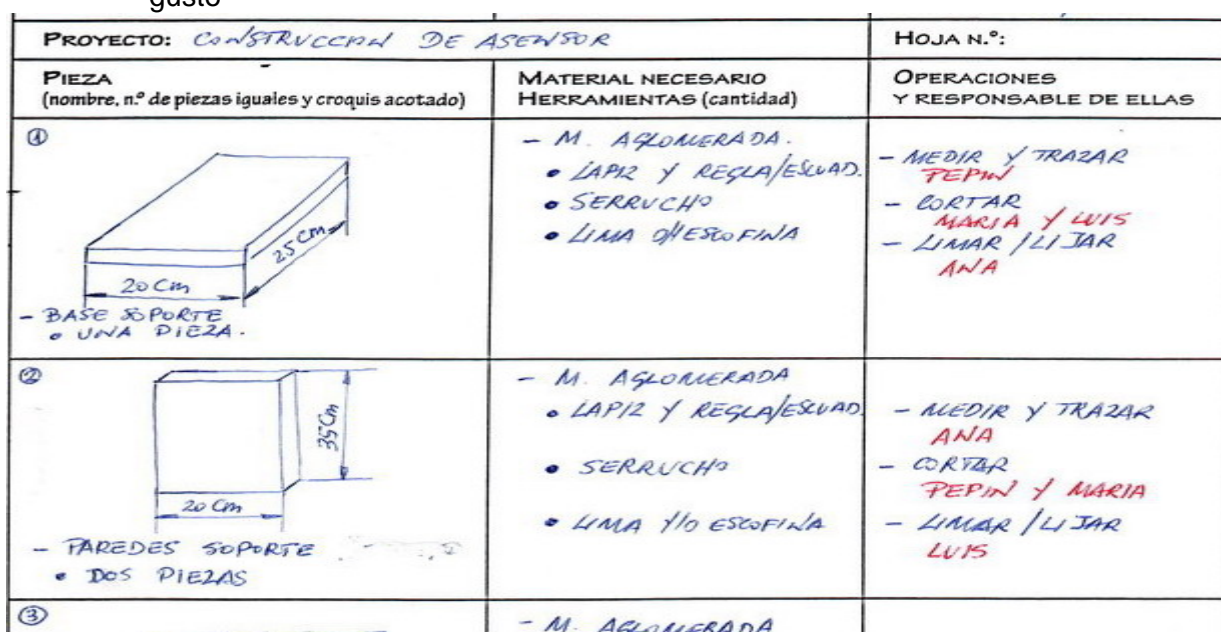 gusto
PROYECTO: CONSTRUCCION DE ASENSOR
HOJA N.º:
PIEZA
(nombre, n.º de piezas iguales y croquis acotado)
MATERIAL NECESARIO
HERRAMIENTAS (cantidad)
OPERACIONES
Y RESPONSABLE DE ELLAS
①
20 Cm
25 Cm
- BASE SOPORTE
• UNA PIEZA.
- M. AGLOMERADA.
• LAPIZ Y REGLA/ESCUAD.
• SERRUCHO
• LIMA ESCOFINA
- MEDIR Y TRAZAR
PEPIN
- CORTAR
MARIA Y LUIS
- LIMAR / LIJAR
ANA
②
35 Cm
20 Cm
- PAREDES SOPORTE
• DOS PIEZAS
- M. AGLOMERADA
• LAPIZ Y REGLA/ESCUAD.
• SERRUCHO
• LIMA Y/O ESCOFINA
- MEDIR Y TRAZAR
ANA
- CORTAR
PEPIN Y MARIA
- LIMAR / LIJAR
LUIS
③
- M. AGLOMERADA